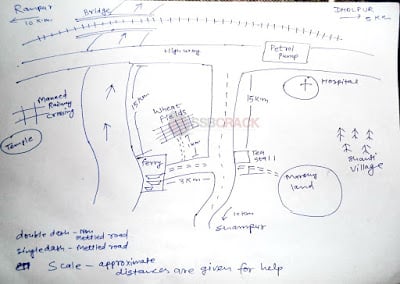 Rampur
10 Km
Bridge
DHOLPUR
5 KM
Highway
Petrol
Pump
Hospital
Manned
Railway
Crossing
Temple
15Km
Wheat
Fields
SSBCRACK
1Km
15Km
Ferry
3Km
Tea
Stall
Marshy
land
Shanti
Village
10Km
Sitampur
double dash - Non
Mettled road
Single dash - Mettled road
Scale - approximate
distances are given for help